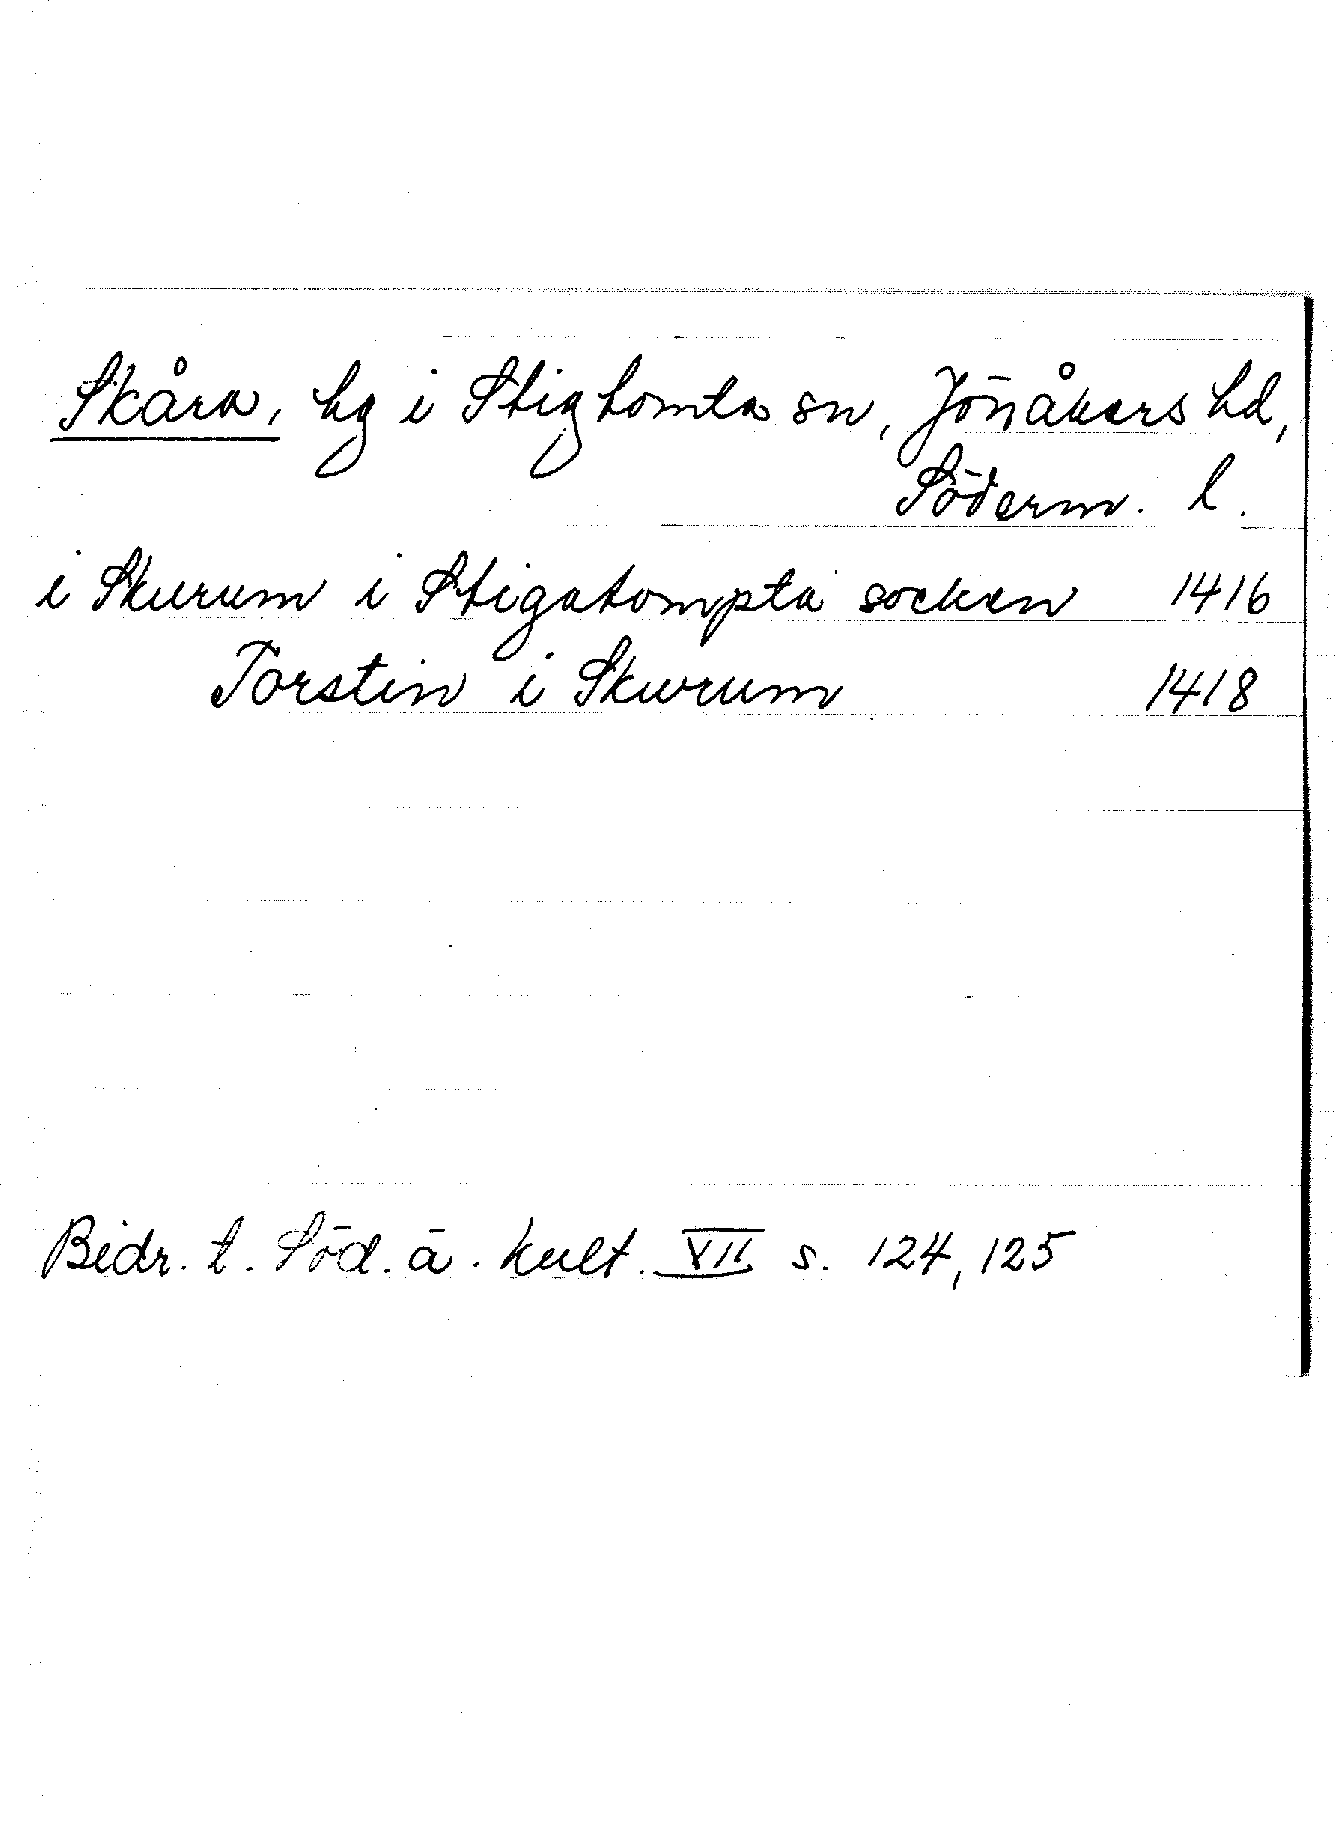 Skåra, hg i Stigtomta sn, Jönåkers hd,
Söderm. l.
i Skurum i Stigatompta socken 1416
Torstin i Skurum 1418
Bidr. t. Söd. ä. kult. VII s. 124, 125